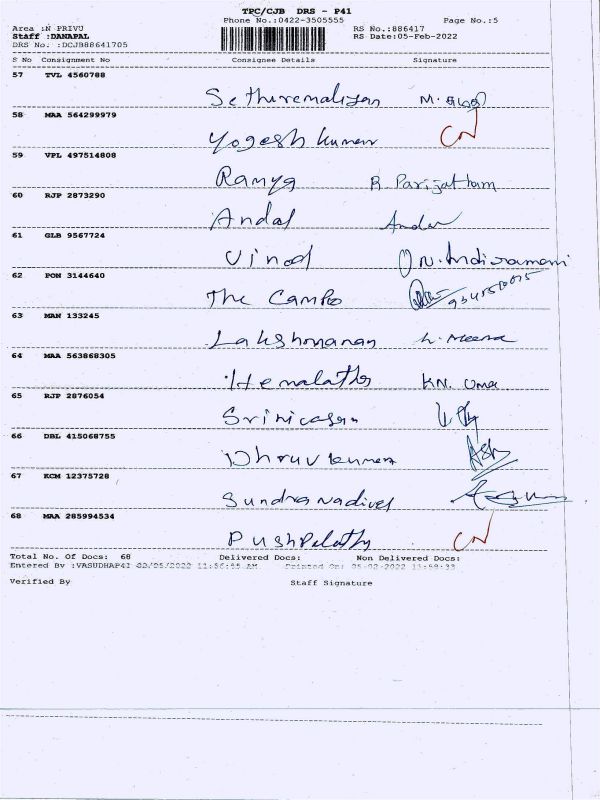 TPC/CJB DRS - P41
Phone No.:0422-3505555 Page No.:5
Area :N PRIVU RS No.:886417
Staff :DANAPAL RS Date:05-Feb-2022
DRS No. :DCJB88641705
S No Consignment No Consignee Details Signature
57 TVL 4560788
Sethuremalizan M.
58 MAA 564299979
Yogesh kumar CN
59 VPL 497514808
Ramya R. Parijatham
60 RJP 2873290
Andal Andal
61 GLB 9567724
Vinod N. Andiramani
62 PON 3144640
The Campo
63 MAN 133245
Lakshmanan L. Meena
64 MAA 563868305
Hemalatha KN. Uma
65 RJP 2876054
Srinivasan
66 DBL 415068755
Dhruv kumar
67 KCM 12375728
Sundra Vadivel
68 MAA 285994534
Pushpalatha CN
Total No. Of Docs: 68 Delivered Docs: Non Delivered Docs:
Entered By :VASUDHAP41 02/05/2022 11:56:55 AM Printed On: 05-02-2022 11:58:33
Verified By Staff Signature